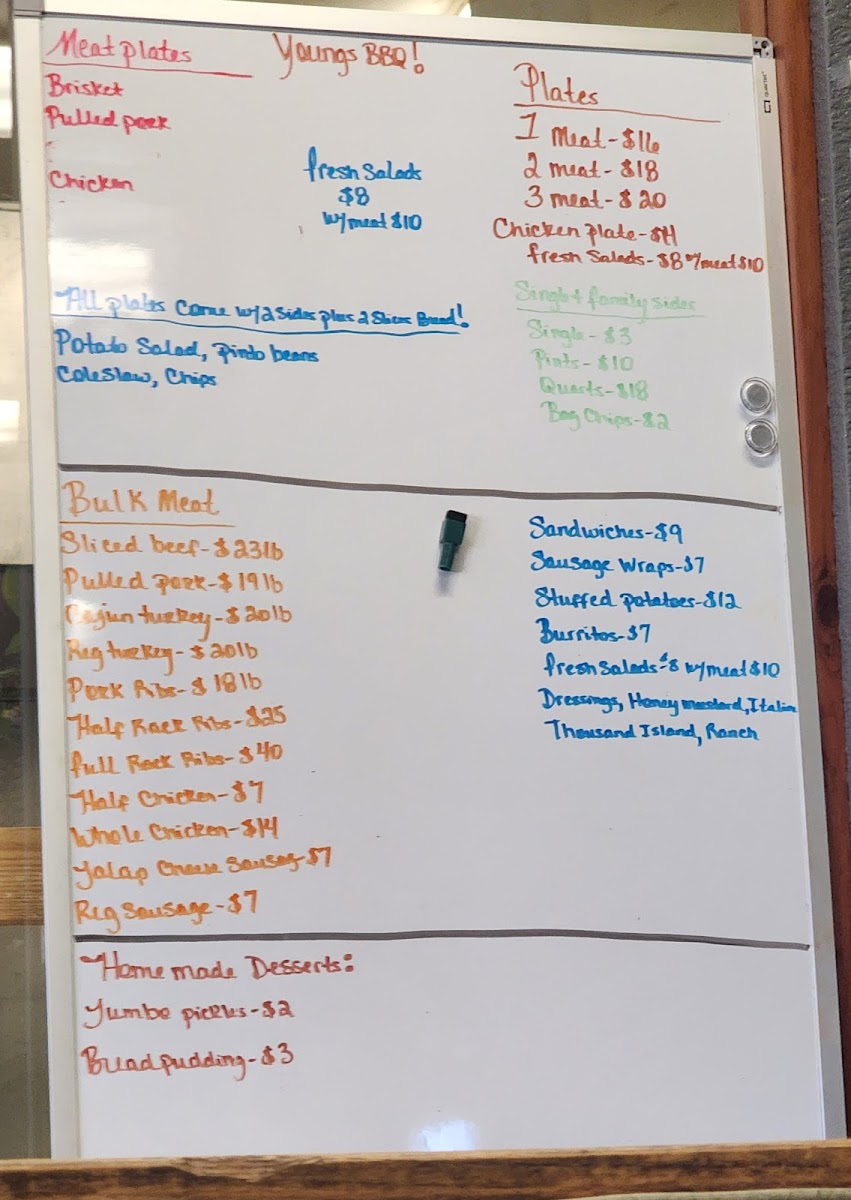 Youngs BBQ!
Meat plates
Brisket
Pulled pork
Chicken
fresh Salads
$8
w/meat $10
Plates
1 meat-$16
2 meat-$18
3 meat-$20
Chicken plate-$11
fresh Salads-$8 w/meat $10
All plates Come w/2 Sides plus 2 Slices Bread!
Potato Salad, Pinto beans
ColeSlaw, Chips
Single + family sides
Single-$3
Pints-$10
Quarts-$18
Bag Chips-$2
Bulk Meat
Sliced beef-$23lb
Pulled pork-$19lb
Cajun turkey-$20lb
Reg turkey-$20lb
Pork Ribs-$18lb
Half Rack Ribs-$25
full Rack Ribs-$40
Half Chicken-$7
Whole Chicken-$14
Jalap Cheese Sausag-$7
Reg Sausage-$7
Sandwiches-$9
Sausage Wraps-$7
Stuffed potatoes-$12
Burritos-$7
fresh Salads-$8 w/meat $10
Dressings, Honey mustard, Italian
Thousand Island, Ranch
Home made Desserts:
Jumbo pickles-$2
Bread pudding-$3